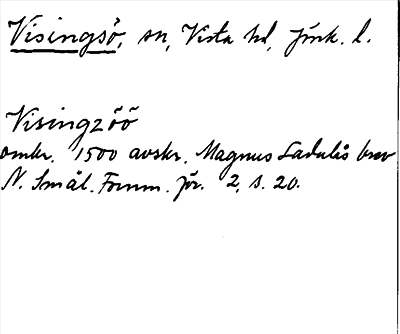 Visingsö, sn, Vista hd, Jönk. l.
Visingzöö
omkr. 1500 avskr. Magnus Ladulås brev
N. Smål. Fornm. för. 2, s. 20.